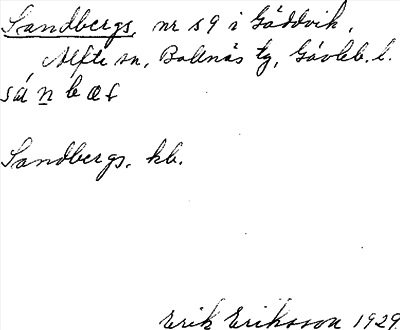 Sandbergs, nr 59 i Gäddvik,
Alfta sn, Bollnäs tg, Gävleb. l.
sán bæʃ
Sandbergs, kb.
Erik Eriksson 1929